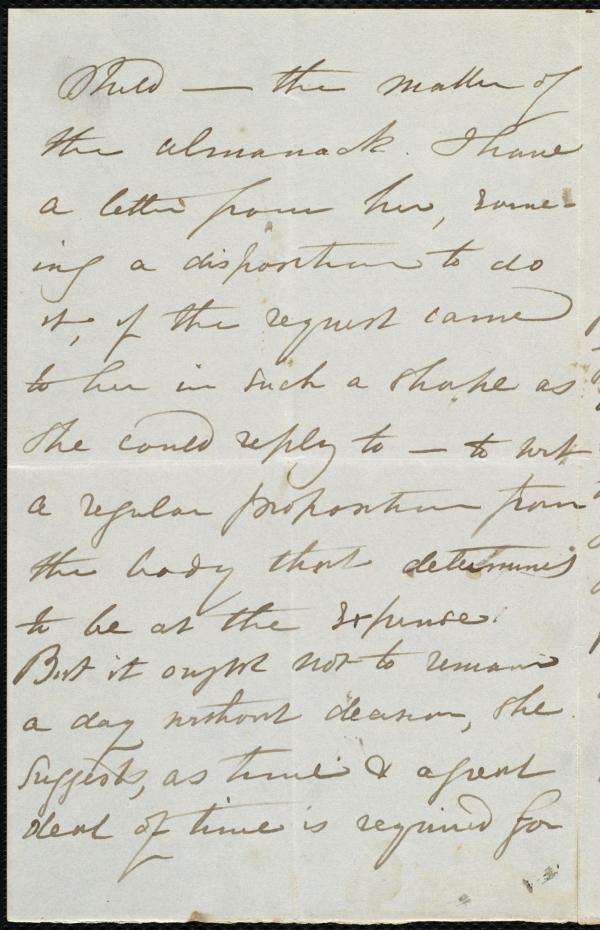 Child — the matter of
the almanack. I have
a letter from her, evinc-
ing a disposition to do
it, if the request came
to her in such a shape as
she could reply to — to wit
a regular proposition from
the body that determines
to be at the expense.
But it ought not to remain
a day without decision, she
suggests, as time & a great
deal of time is required for